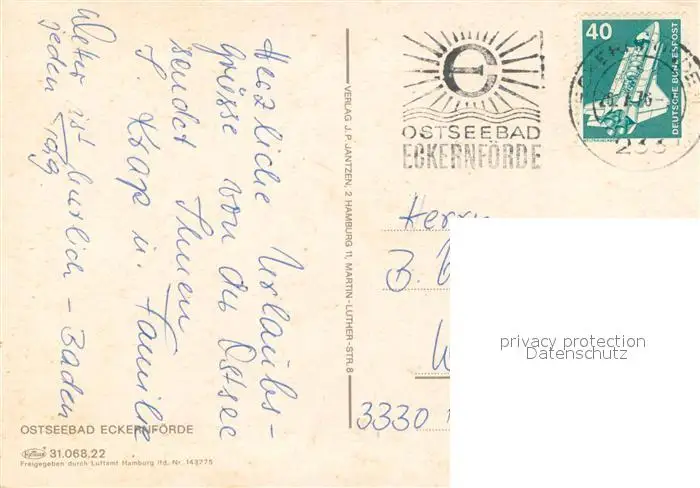 Herzliche Urlaubs-
Grüsse von der Ostsee
sendet Ihnen
Familie
Weter ist hurlich - Baden
jeden Tag.
OSTSEEBAD ECKERNFÖRDE
31.068.22
Freigegeben durch Luftamt Hamburg lfd. Nr. 143775
VERLAG J. P. JANTZEN, 2 HAMBURG 11, MARTIN-LUTHER-STR. 8
OSTSEEBAD
ECKERNFÖRDE
40
DEUTSCHE BUNDESPOST
2331
Herrn
3330
privacy protection
Datenschutz